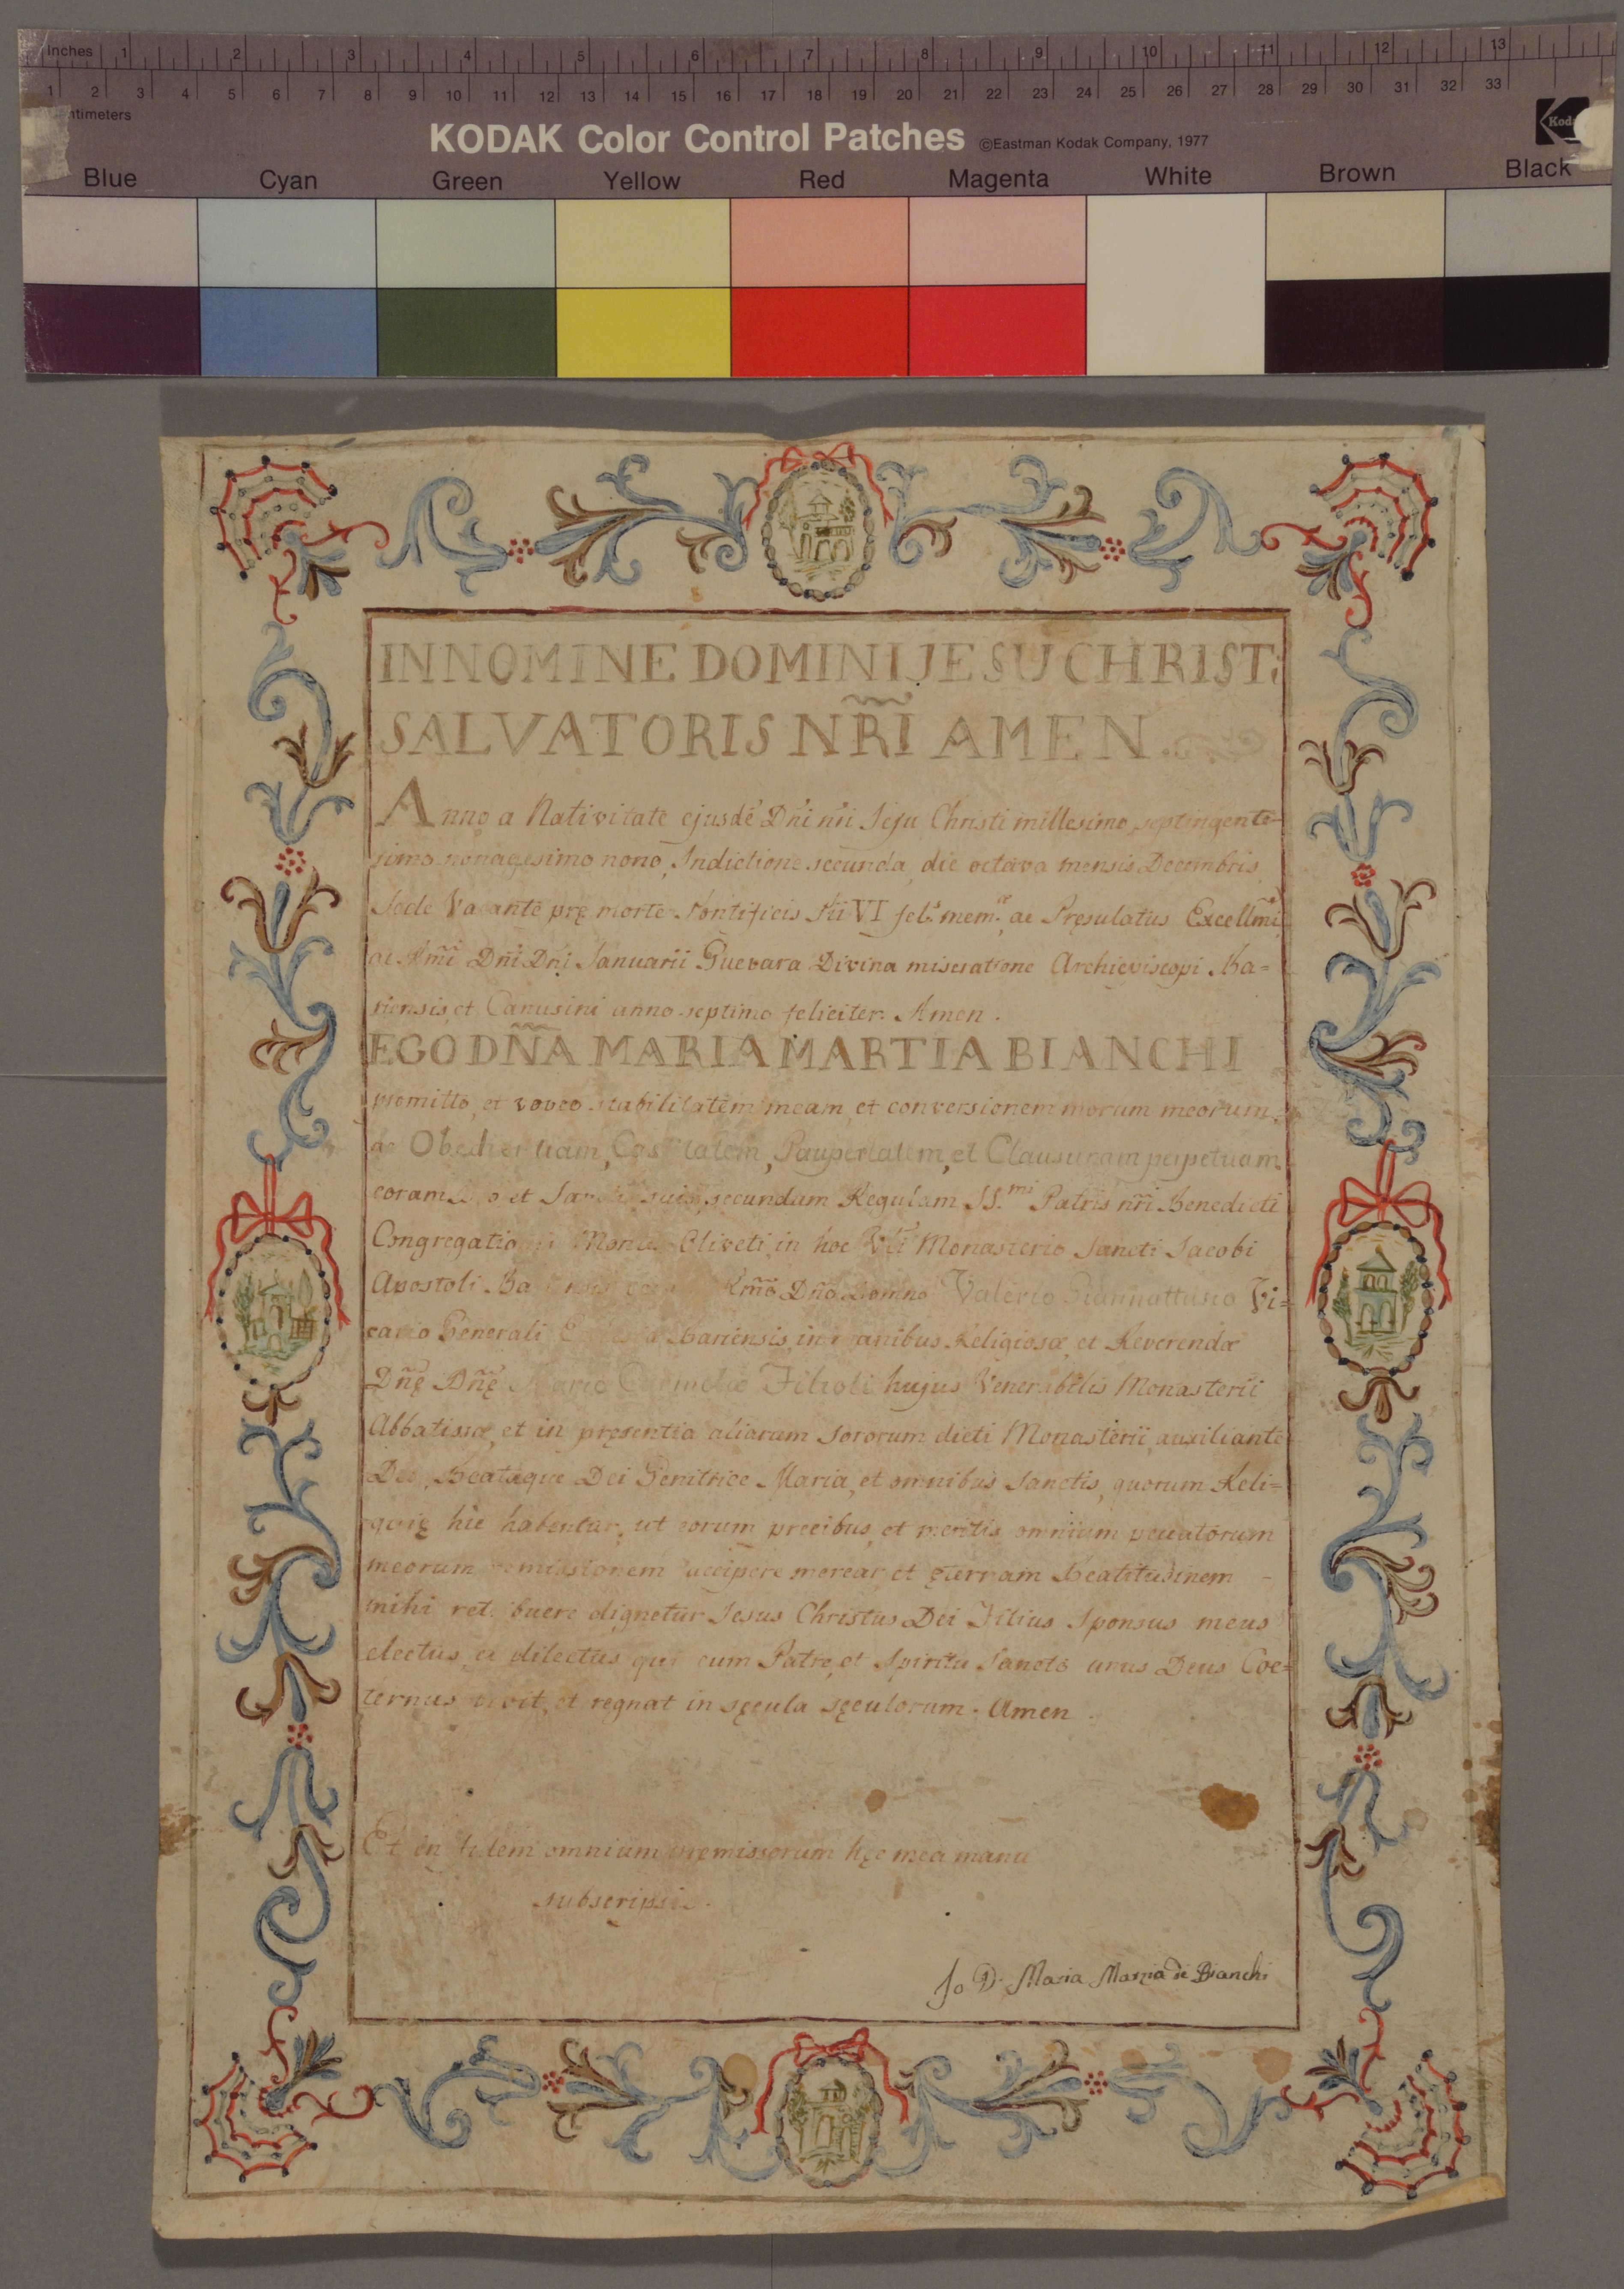 Inches 1 2 3 4 5 6 7 8 9 10 11 12 13
1 2 3 4 5 6 7 8 9 10 11 12 13 14 15 16 17 18 19 20 21 22 23 24 25 26 27 28 29 30 31 32 33
ntimeters
KODAK Color Control Patches ©Eastman Kodak Company, 1977
Kod
Blue Cyan Green Yellow Red Magenta White Brown Black
IN NOMINE DOMINI JESU CHRISTI
SALVATORIS NR̃I AMEN.
Anno a Nativitate ejusdē Dñi nr̃i Jesu Christi millesimo septingente-
simo nonagesimo nono, Indictione secunda, die octava mensis Decembris,
Sede Vacante prę morte Pontificis Pii VI fel. mem. ac Pręsulatus Excellm̃i
ac Dñi Dñi Januarii Guevara Divina miseratione Archiepiscopi Ba=
riensis, et Canusini anno septimo feliciter. Amen.
EGO DÑA MARIA MARTIA BIANCHI
promitto, et voveo stabilitatem meam, et conversionem morum meorum,
ac Obedientiam, Castitatem, Paupertatem, et Clausuram perpetuam
coram et suis, secundum Regulam SS.mi Patris nr̃i Benedicti
Congregationis Oliveti, in hoc Monasterio Sancti Jacobi
Apostoli Rm̃o Dño Domno Valerio Giannattasio Vi=
cario Generali Bariensis, in manibus Religiosæ, et Reverendæ
Dñę Dñę hujus Venerabilis Monasterii
Abbatissæ, et in pręsentia aliarum Sororum dicti Monasterii auxiliante
Deo, Beataque Dei Genitrice Maria, et omnibus Sanctis, quorum Reli=
quię hic habentur, ut eorum precibus, et meritis omnium peccatorum
meorum remissionem accipere merear, et ęternam Beatitudinem -
mihi retribuere dignetur Jesus Christus Dei Filius Sponsus meus
electus, et dilectus qui cum Patre, et Spiritu Sancto unus Deus Coe=
ternus vivit, et regnat in sęcula sęculorum. Amen.
Et in fidem omnium pręmissorum hęc mea manu
subscripsi.
Io D. Maria Marzia de Bianchi